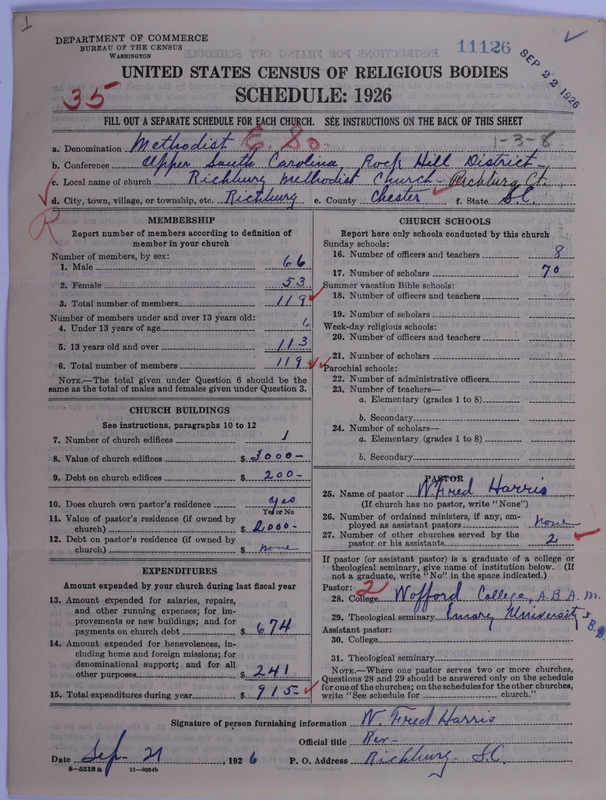 1
DEPARTMENT OF COMMERCE
BUREAU OF THE CENSUS
WASHINGTON
11126
SEP 22 1926
UNITED STATES CENSUS OF RELIGIOUS BODIES
SCHEDULE: 1926
35
FILL OUT A SEPARATE SCHEDULE FOR EACH CHURCH. SEE INSTRUCTIONS ON THE BACK OF THIS SHEET
a. Denomination Methodist E. So. 1-3-8
b. Conference Upper South Carolina, Rock Hill District
c. Local name of church Richburg Methodist Church - Richburg Ct.
d. City, town, village, or township, etc. Richburg e. County Chester f. State S.C.
R
MEMBERSHIP
Report number of members according to definition of member in your church
Number of members, by sex:
1. Male 66
2. Female 53
3. Total number of members 119
Number of members under and over 13 years old:
4. Under 13 years of age 6
5. 13 years old and over 113
6. Total number of members 119
NOTE.—The total given under Question 6 should be the same as the total of males and females given under Question 3.
CHURCH BUILDINGS
See instructions, paragraphs 10 to 12
7. Number of church edifices 1
8. Value of church edifices $3000-
9. Debt on church edifices $200-
10. Does church own pastor's residence yes
Yes or No
11. Value of pastor's residence (if owned by church) $2000-
12. Debt on pastor's residence (if owned by church) $ none
EXPENDITURES
Amount expended by your church during last fiscal year
13. Amount expended for salaries, repairs, and other running expenses; for improvements or new buildings; and for payments on church debt $674
14. Amount expended for benevolences, including home and foreign missions; for denominational support; and for all other purposes $241
15. Total expenditures during year $915-
CHURCH SCHOOLS
Report here only schools conducted by this church
Sunday schools:
16. Number of officers and teachers 8
17. Number of scholars 70
Summer vacation Bible schools:
18. Number of officers and teachers
19. Number of scholars
Week-day religious schools:
20. Number of officers and teachers
21. Number of scholars
Parochial schools:
22. Number of administrative officers
23. Number of teachers—
a. Elementary (grades 1 to 8)
b. Secondary
24. Number of scholars—
a. Elementary (grades 1 to 8)
b. Secondary
PASTOR
25. Name of pastor W Fred Harris
(If church has no pastor, write "None")
26. Number of ordained ministers, if any, employed as assistant pastors none
27. Number of other churches served by the pastor or his assistants 2
If pastor (or assistant pastor) is a graduate of a college or theological seminary, give name of institution below. (If not a graduate, write "No" in the space indicated.)
Pastor: 2
28. College Wofford College, A.B. A.M.
29. Theological seminary Emory University B.D.
Assistant pastor:
30. College
31. Theological seminary
NOTE.—Where one pastor serves two or more churches, Questions 28 and 29 should be answered only on the schedule for one of the churches; on the schedules for the other churches, write "See schedule for church."
Signature of person furnishing information W. Fred Harris
Official title Rev-
Date Sep. 21, 1926 P. O. Address Richburg S.C.
8—5518a 11—9054b